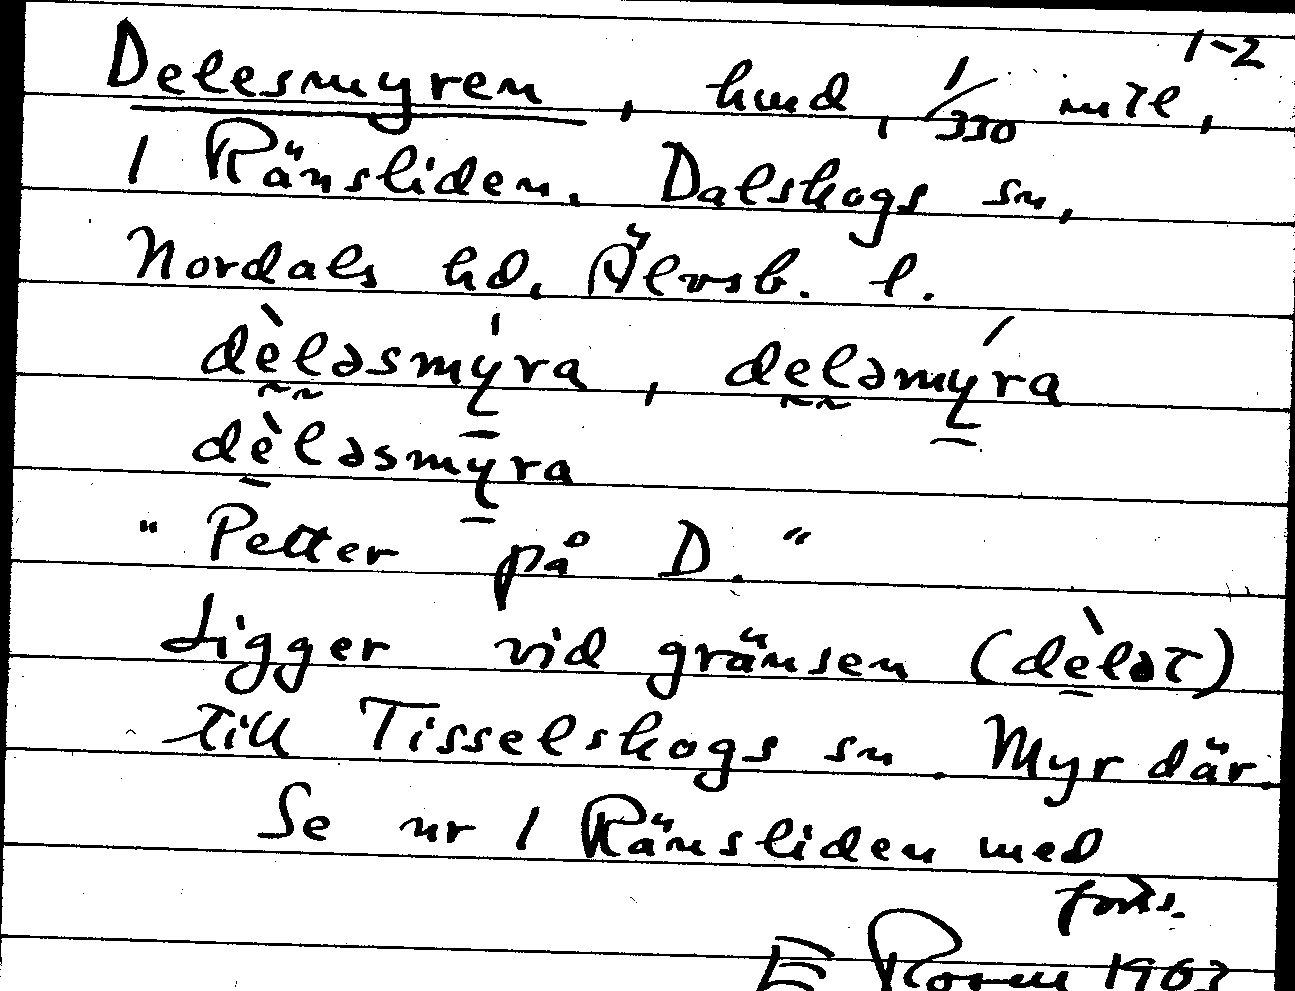 1-2
Delesmyren, hmd, 1/330 mtl,
1 Ränsliden. Dalskogs sn,
Nordals hd, Älvsb. l.
dḛ̀l̰əsmý̱ra, dḛl̰əmý̱ra
dè̱ləsmy̱ra
" Petter på D. "
Ligger vid gränsen (dè̱lət)
till Tisselskogs sn. Myr där.
Se nr 1 Ränsliden med
forts.
E Rosell 1963